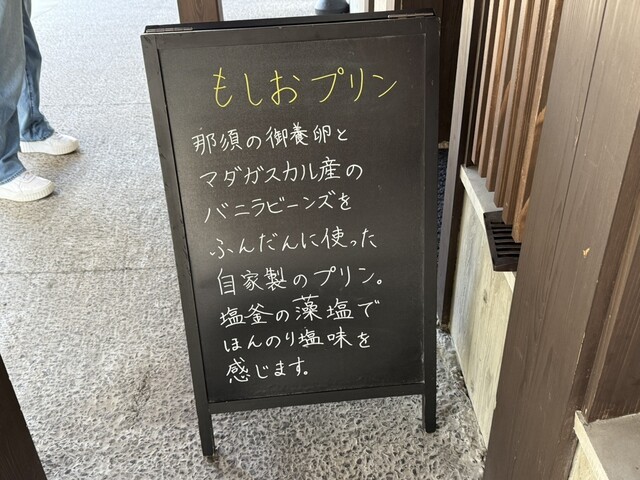 もしおプリン
那須の御養卵と
マダガスカル産の
バニラビーンズを
ふんだんに使った
自家製のプリン。
塩釜の藻塩で
ほんのり塩味を
感じます。